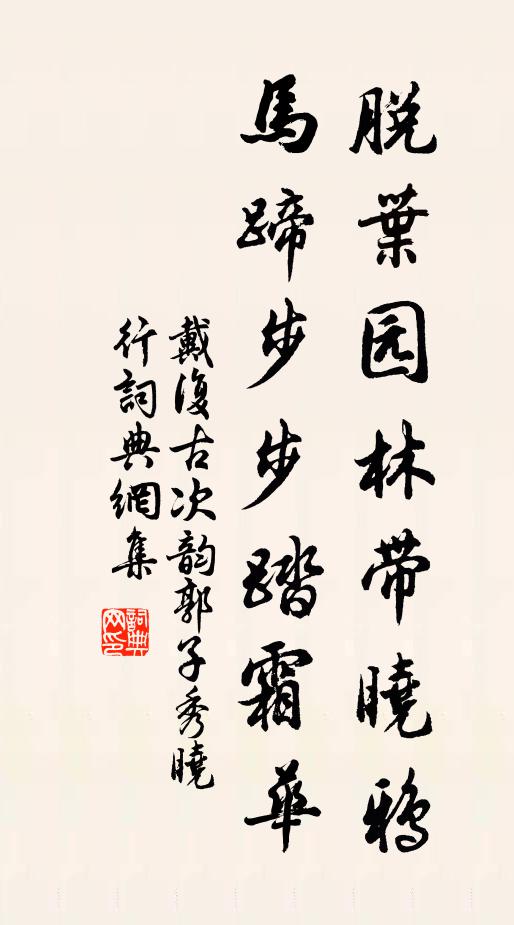 脫葉园林帶曉鴉
馬蹄步步踏霜華
戴復古次韵郭子秀曉
行詞典網集
詞典網印